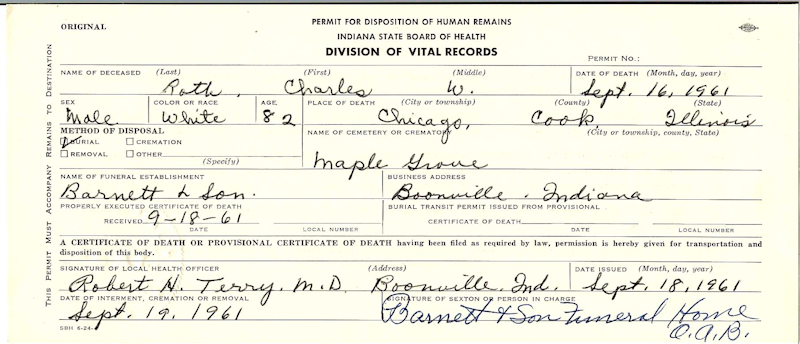 ORIGINAL
PERMIT FOR DISPOSITION OF HUMAN REMAINS
INDIANA STATE BOARD OF HEALTH
DIVISION OF VITAL RECORDS
PERMIT NO.:
THIS PERMIT MUST ACCOMPANY REMAINS TO DESTINATION
NAME OF DECEASED (Last) (First) (Middle) DATE OF DEATH (Month, day, year)
Roth, Charles W. Sept. 16, 1961
SEX COLOR OR RACE AGE PLACE OF DEATH (City or township) (County) (State)
Male White 82 Chicago, Cook Illinois
METHOD OF DISPOSAL NAME OF CEMETERY OR CREMATORY (City or township, county, State)
BURIAL CREMATION
REMOVAL OTHER
(Specify)
Maple Grove
NAME OF FUNERAL ESTABLISHMENT BUSINESS ADDRESS
Barnett & Son. Boonville, Indiana
PROPERLY EXECUTED CERTIFICATE OF DEATH BURIAL TRANSIT PERMIT ISSUED FROM PROVISIONAL
RECEIVED 9-18-61 CERTIFICATE OF DEATH
DATE LOCAL NUMBER DATE LOCAL NUMBER
A CERTIFICATE OF DEATH OR PROVISIONAL CERTIFICATE OF DEATH having been filed as required by law, permission is hereby given for transportation and
disposition of this body.
SIGNATURE OF LOCAL HEALTH OFFICER (Address) DATE ISSUED (Month, day, year)
Robert H. Terry, M.D. Boonville, Ind. Sept. 18, 1961
DATE OF INTERMENT, CREMATION OR REMOVAL SIGNATURE OF SEXTON OR PERSON IN CHARGE
Sept. 19, 1961 Barnett & Son Funeral Home
O.A.B.
SBH 6-24-